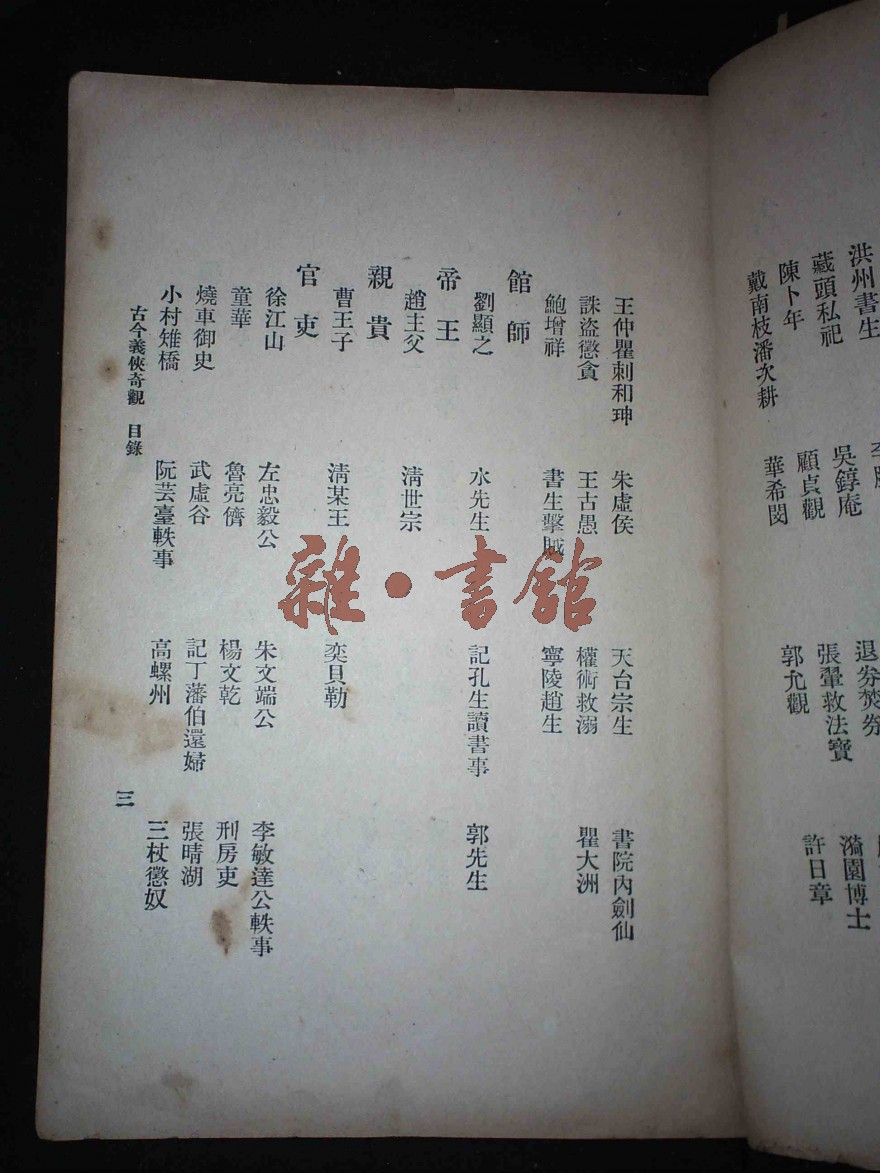 洪州書生
藏頭私祀 吳錞庵 退券焚券
陳卜年 顧貞觀 張翬救法寶 漪園博士
戴南枝潘次耕 華希閔 郭允觀 許日章
王仲瞿刺和珅 朱虛侯 天台宗生 書院內劍仙
誅盜懲貪 王古愚 權術救溺 瞿大洲
鮑增祥 書生擊賊 寧陵趙生
館師
劉顯之 水先生 記孔生讀書事 郭先生
帝王
趙主父 清世宗
親貴
曹王子 清某王 奕貝勒
官吏
徐江山 左忠毅公 朱文端公 李敏達公軼事
童華 魯亮儕 楊文乾 刑房吏
燒車御史 武虛谷 記丁藩伯還婦 張晴湖
小村雉橋 阮芸臺軼事 高螺州 三杖懲奴
古今義俠奇觀 目錄 三
雜·書館